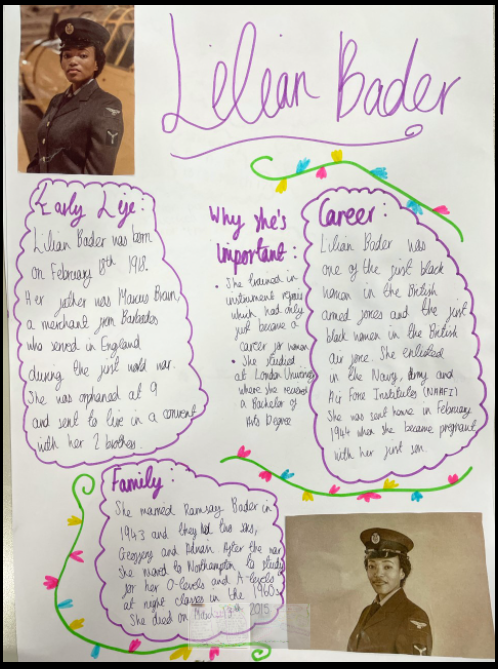 Lilian Bader
Early Life:
Lilian Bader was born
on February 18th 1918.
Her father was Marcus Bain,
a merchant from Barbados
who served in England
during the first world war.
She was orphaned at 9
and sent to live in a convent
with her 2 brothers.
Why she's
important:
• She trained in
instrument repair
which had only
just became a
career for women
• She studied
at London University
where she received
a Bachelor of
Arts Degree
Career:
Lilian Bader was
one of the first black
women in the British
armed forces and the first
black women in the British
air force. She enlisted
in the Navy, Army and
Air Force Institutes (NAAFI)
She was sent home in February
1944 when she became pregnant
with her first son.
Family:
She married Ramsay Bader in
1943 and they had two sons,
Geoffrey and Adrian. After the war
She moved to Northampton to study
for her O-levels and A-levels
at night classes in the 1960s
She died on March 13th 2015